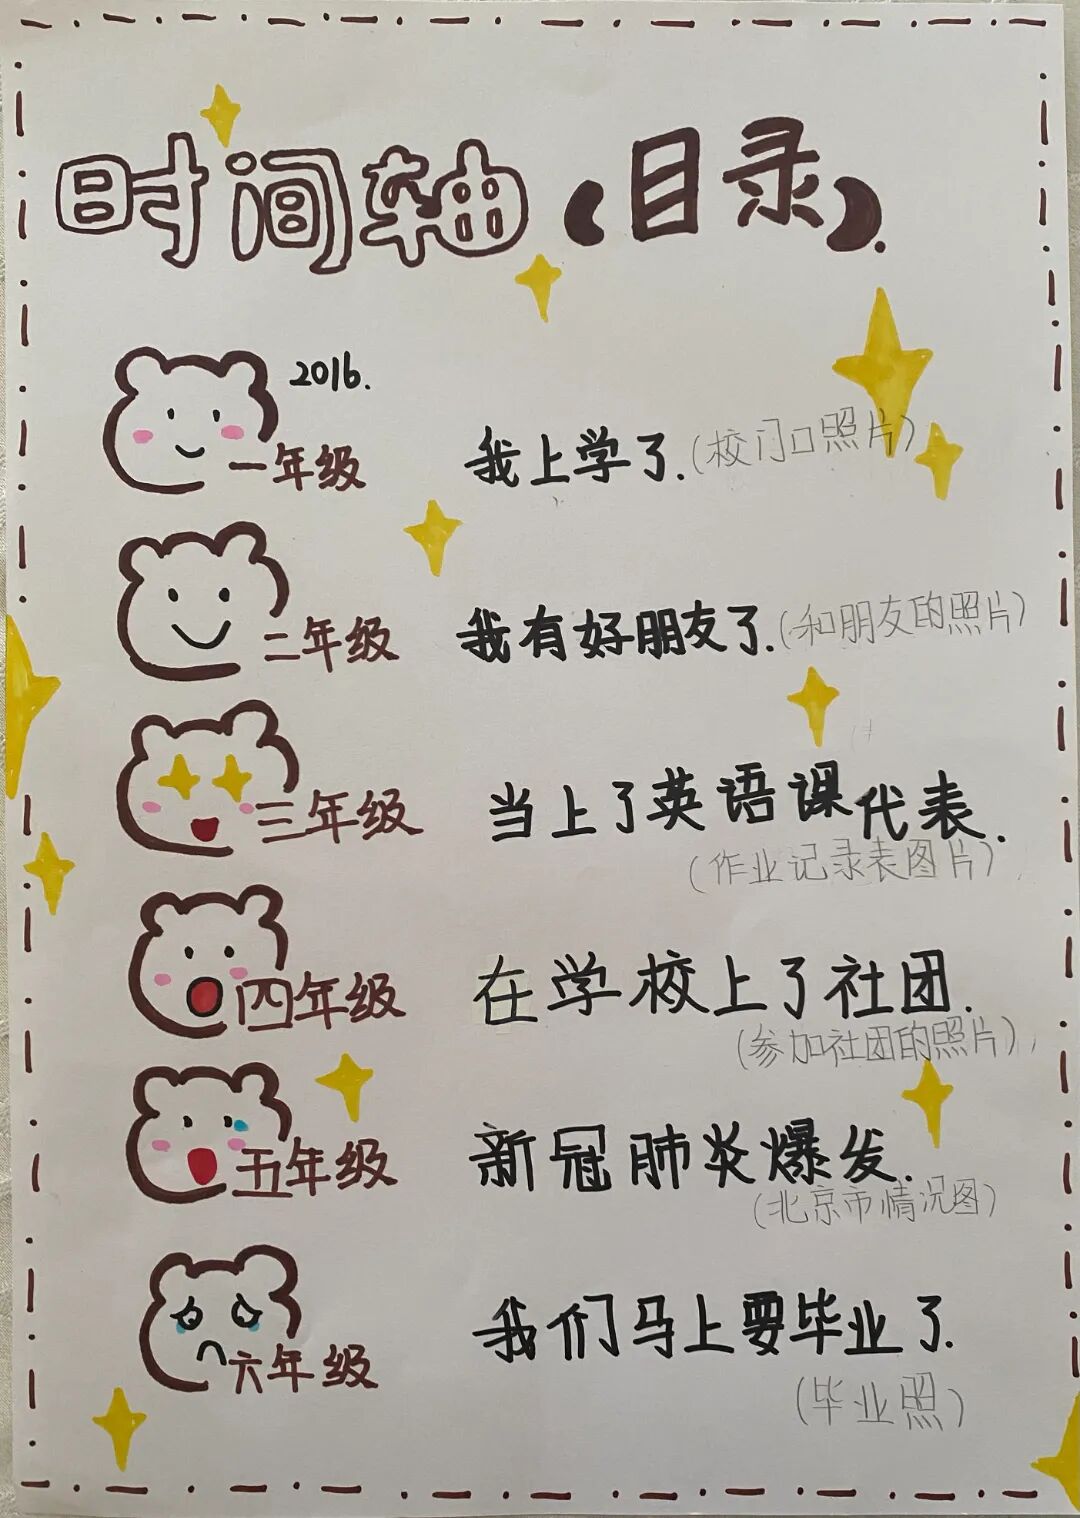 时间轴(目录).
2016.
一年级
我上学了.(校门口照片)
二年级
我有好朋友了.(和朋友的照片)
三年级
当上了英语课代表.
(作业记录表图片)
四年级
在学校上了社团.
(参加社团的照片)
五年级
新冠肺炎爆发.
(北京市情况图)
六年级
我们马上要毕业了.
(毕业照)